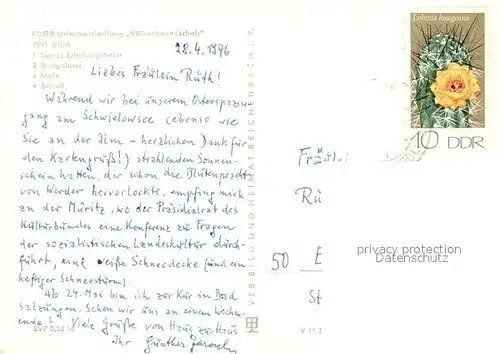 FDGB-Urlaubersiedlung „Völkerfreundschaft"
2091 Klink
1 Neues Erholungsheim
2 Bungalows
3 Mole
4 Strand
28.4.1976
Liebes Fräulein Ruth!
Während wir bei unserem Osterspazier-
gang am Schwielowsee (ebenso wie
Sie an der Ilm – herzlichen Dank für
den Kartengruß!) strahlenden Sonnen-
schein hatten, der schon die Blütenpracht
von Werder hervorlockte, empfing mich
an der Müritz, wo der Präsidialrat des
Kulturbundes eine Konferenz zu Fragen
der sozialistischen Landeskultur durch-
führt, eine weiße Schneedecke (und ein
heftiger Schneesturm).
Ab 24. Mai bin ich zur Kur in Bad
Salzungen. Sehen wir uns an einem Wochen-
ende? Viele Grüße von Haus zu Haus
Ihr Günther
EVP 0,20 M
VEB BILD UND HEIMAT REICHENBACH I. V.
V 11 2
Lobivia haageana
10 DDR
Fräul
Ru
50 E
St
privacy protection
Datenschutz